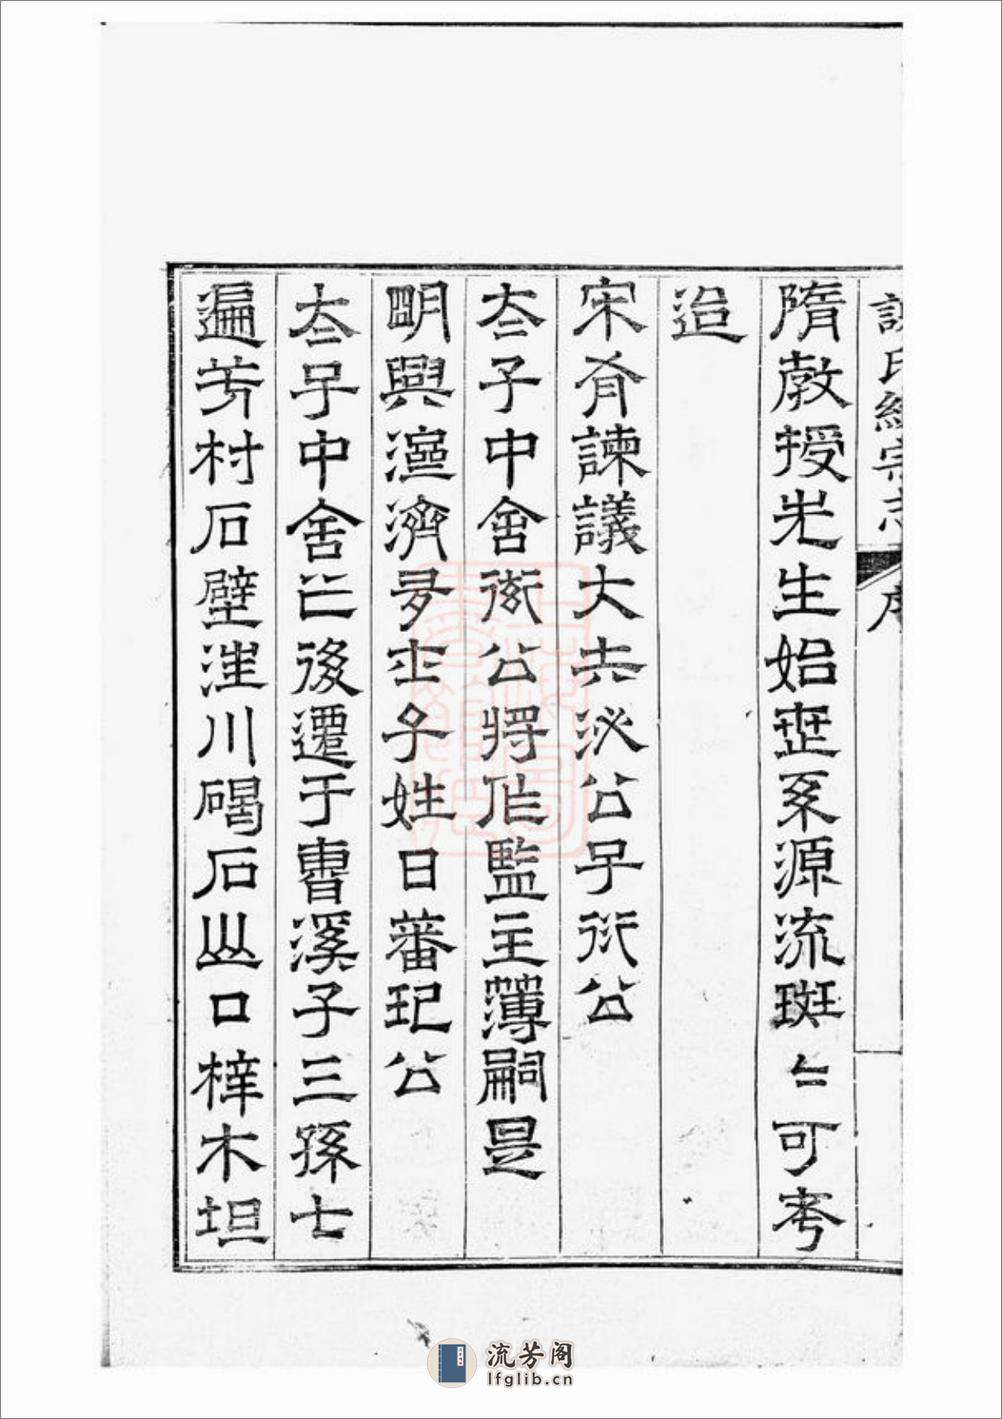 謝氏統宗志 序
隋敎授先生始世系源流斑斑可考
迨
宋有諫議大夫泌公子衍公
太子中舍衒公將作監主簿嗣是
明興濟濟多士子姓日蕃玘公
太子中舍之後遷于曹溪子三孫七
遍芳村石壁汪川碣石山口梓木坦
流芳阁
lfglib.cn